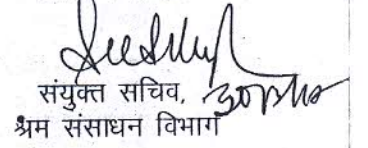 संयुक्त सचिव,
श्रम संसाधन विभाग